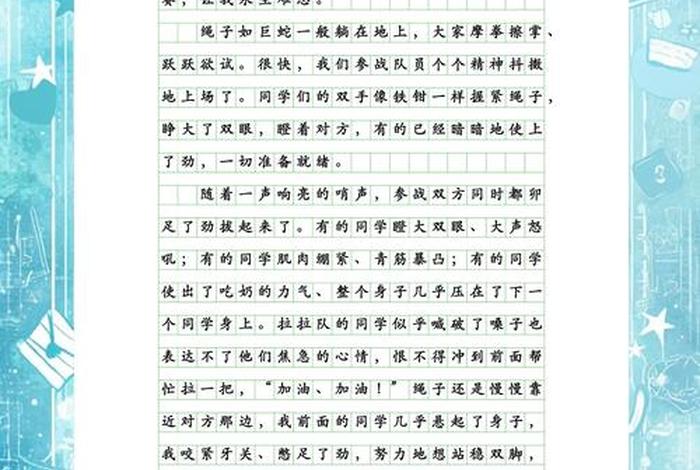 绳子如巨蛇一般躺在地上，大家摩拳擦掌、
跃跃欲试。很快，我们参战队员个个精神抖擞
地上场了。同学们的双手像铁钳一样握紧绳子，
睁大了双眼，瞪着对方，有的已经暗暗地使上
了劲，一切准备就绪。
随着一声响亮的哨声，参战双方同时都卯
足了劲拔起来了。有的同学瞪大双眼、大声怒
吼；有的同学肌肉绷紧、青筋暴凸；有的同学
使出了吃奶的力气、整个身子几乎压在了下一
个同学身上。拉拉队的同学似乎喊破了嗓子也
表达不了他们焦急的心情，恨不得冲到前面帮
忙拉一把，“加油、加油！”绳子还是慢慢靠
近对方那边，我前面的同学几乎悬起了身子，
我咬紧牙关、憋足了劲，努力地想站稳双脚，